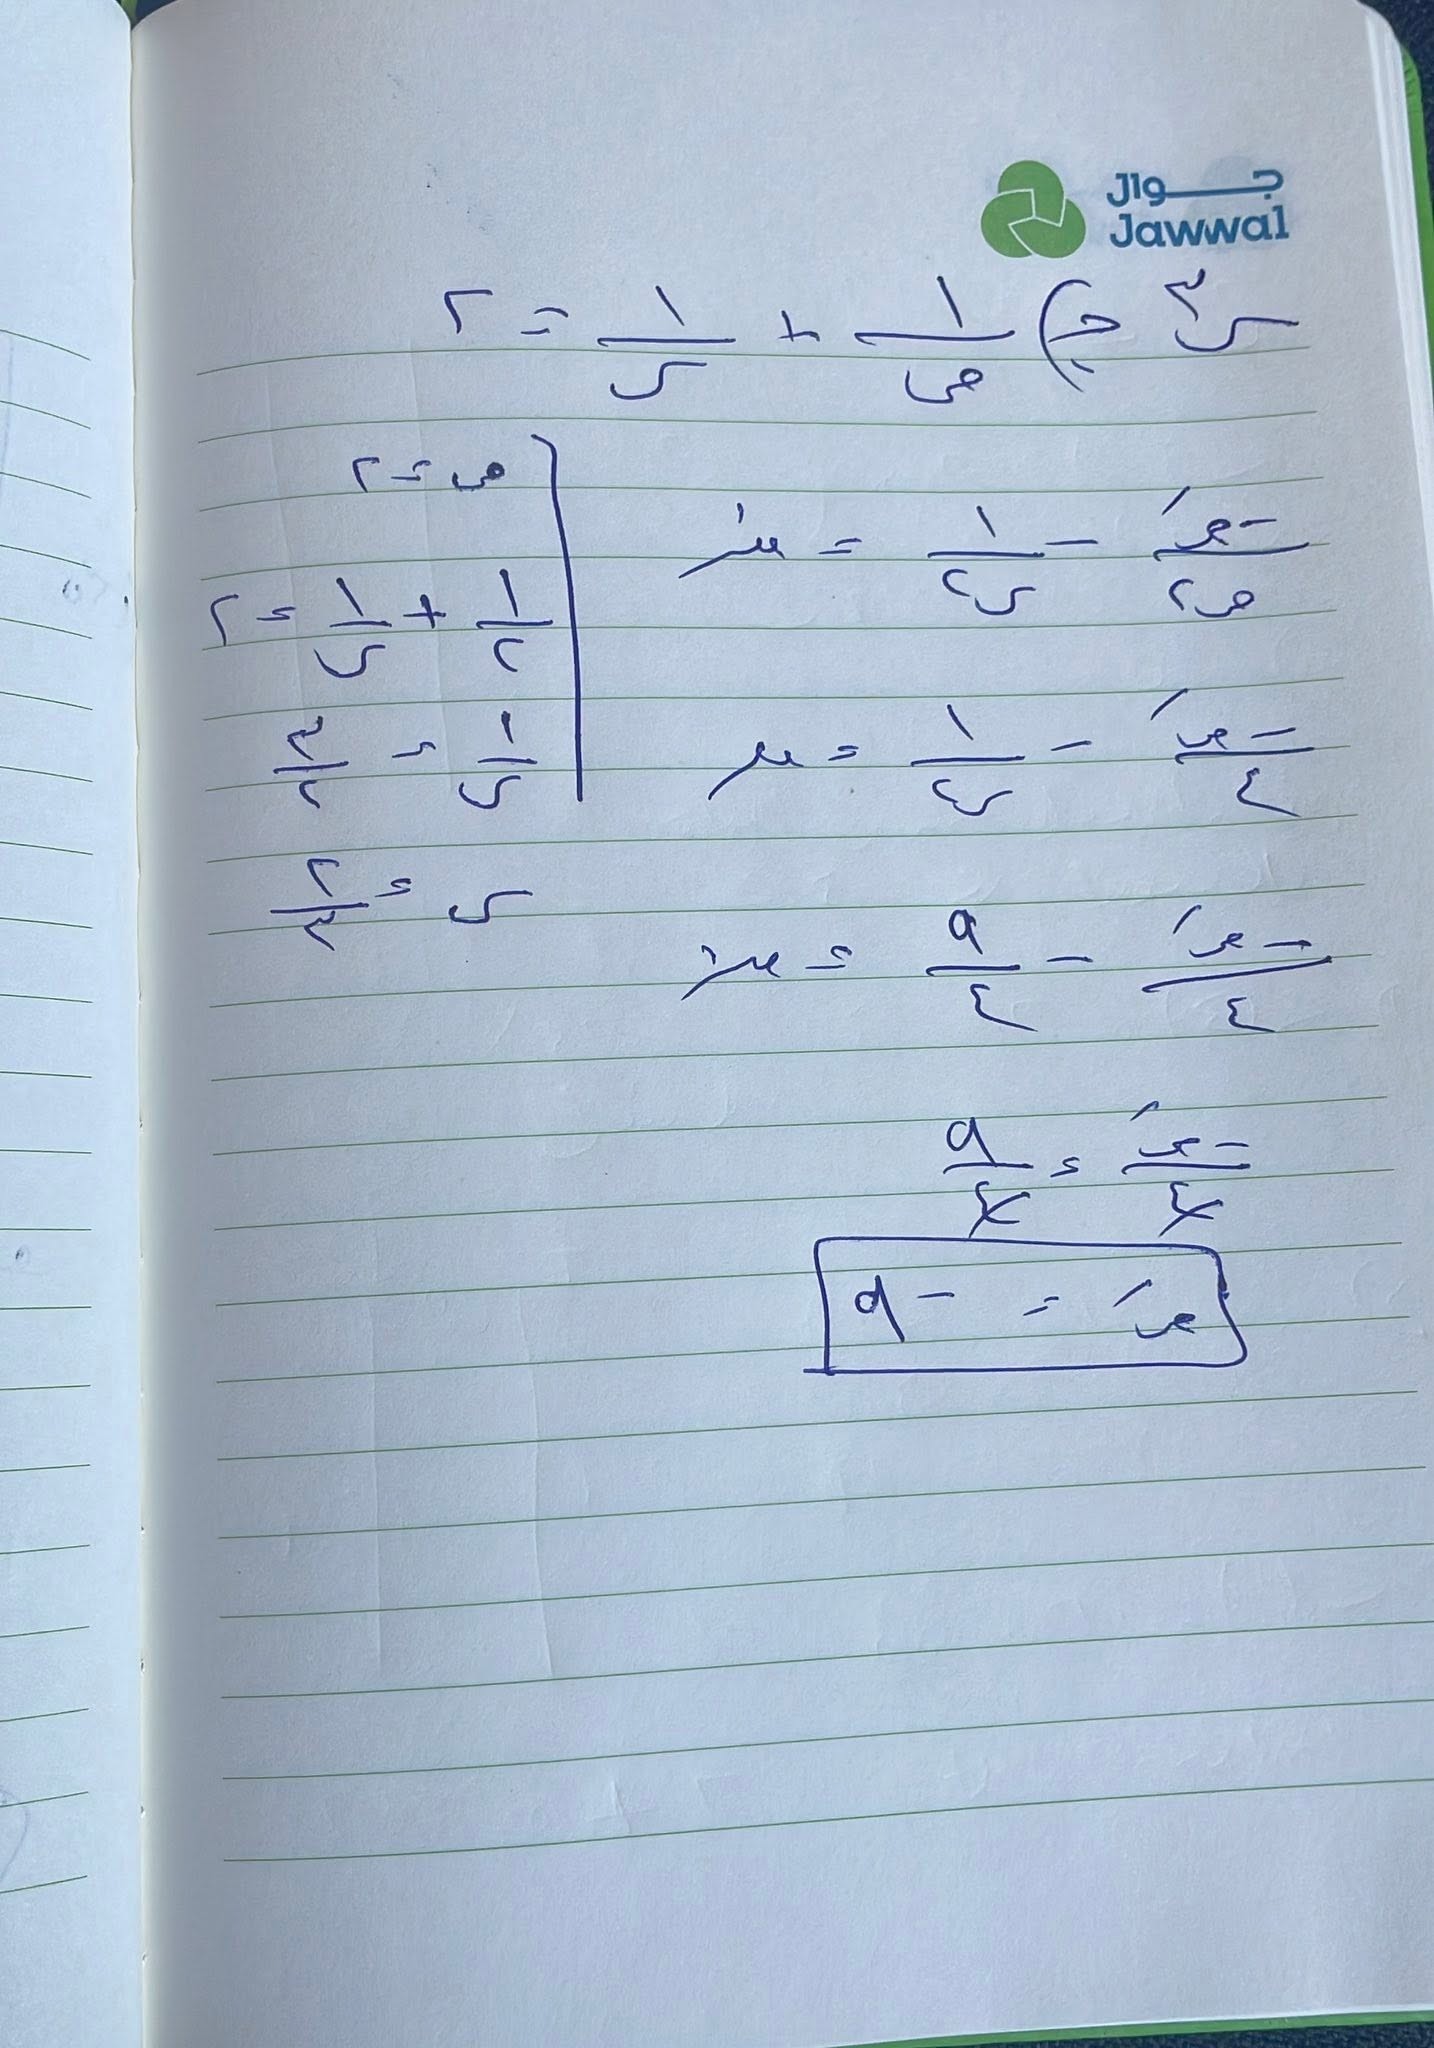 جـــوال
Jawwal
س٣ ج) ١/ص + ١/س = ٢
-صَ/ص٢ - ١/س٢ = صفر
-صَ/٤ - ١/س٢ = صفر
-صَ/٤ - ٩/٤ = صفر
-صَ/٤ = ٩/٤
صَ = -٩
ص = ٢
١/٢ + ١/س = ٢
١/س = ٣/٢
س = ٢/٣